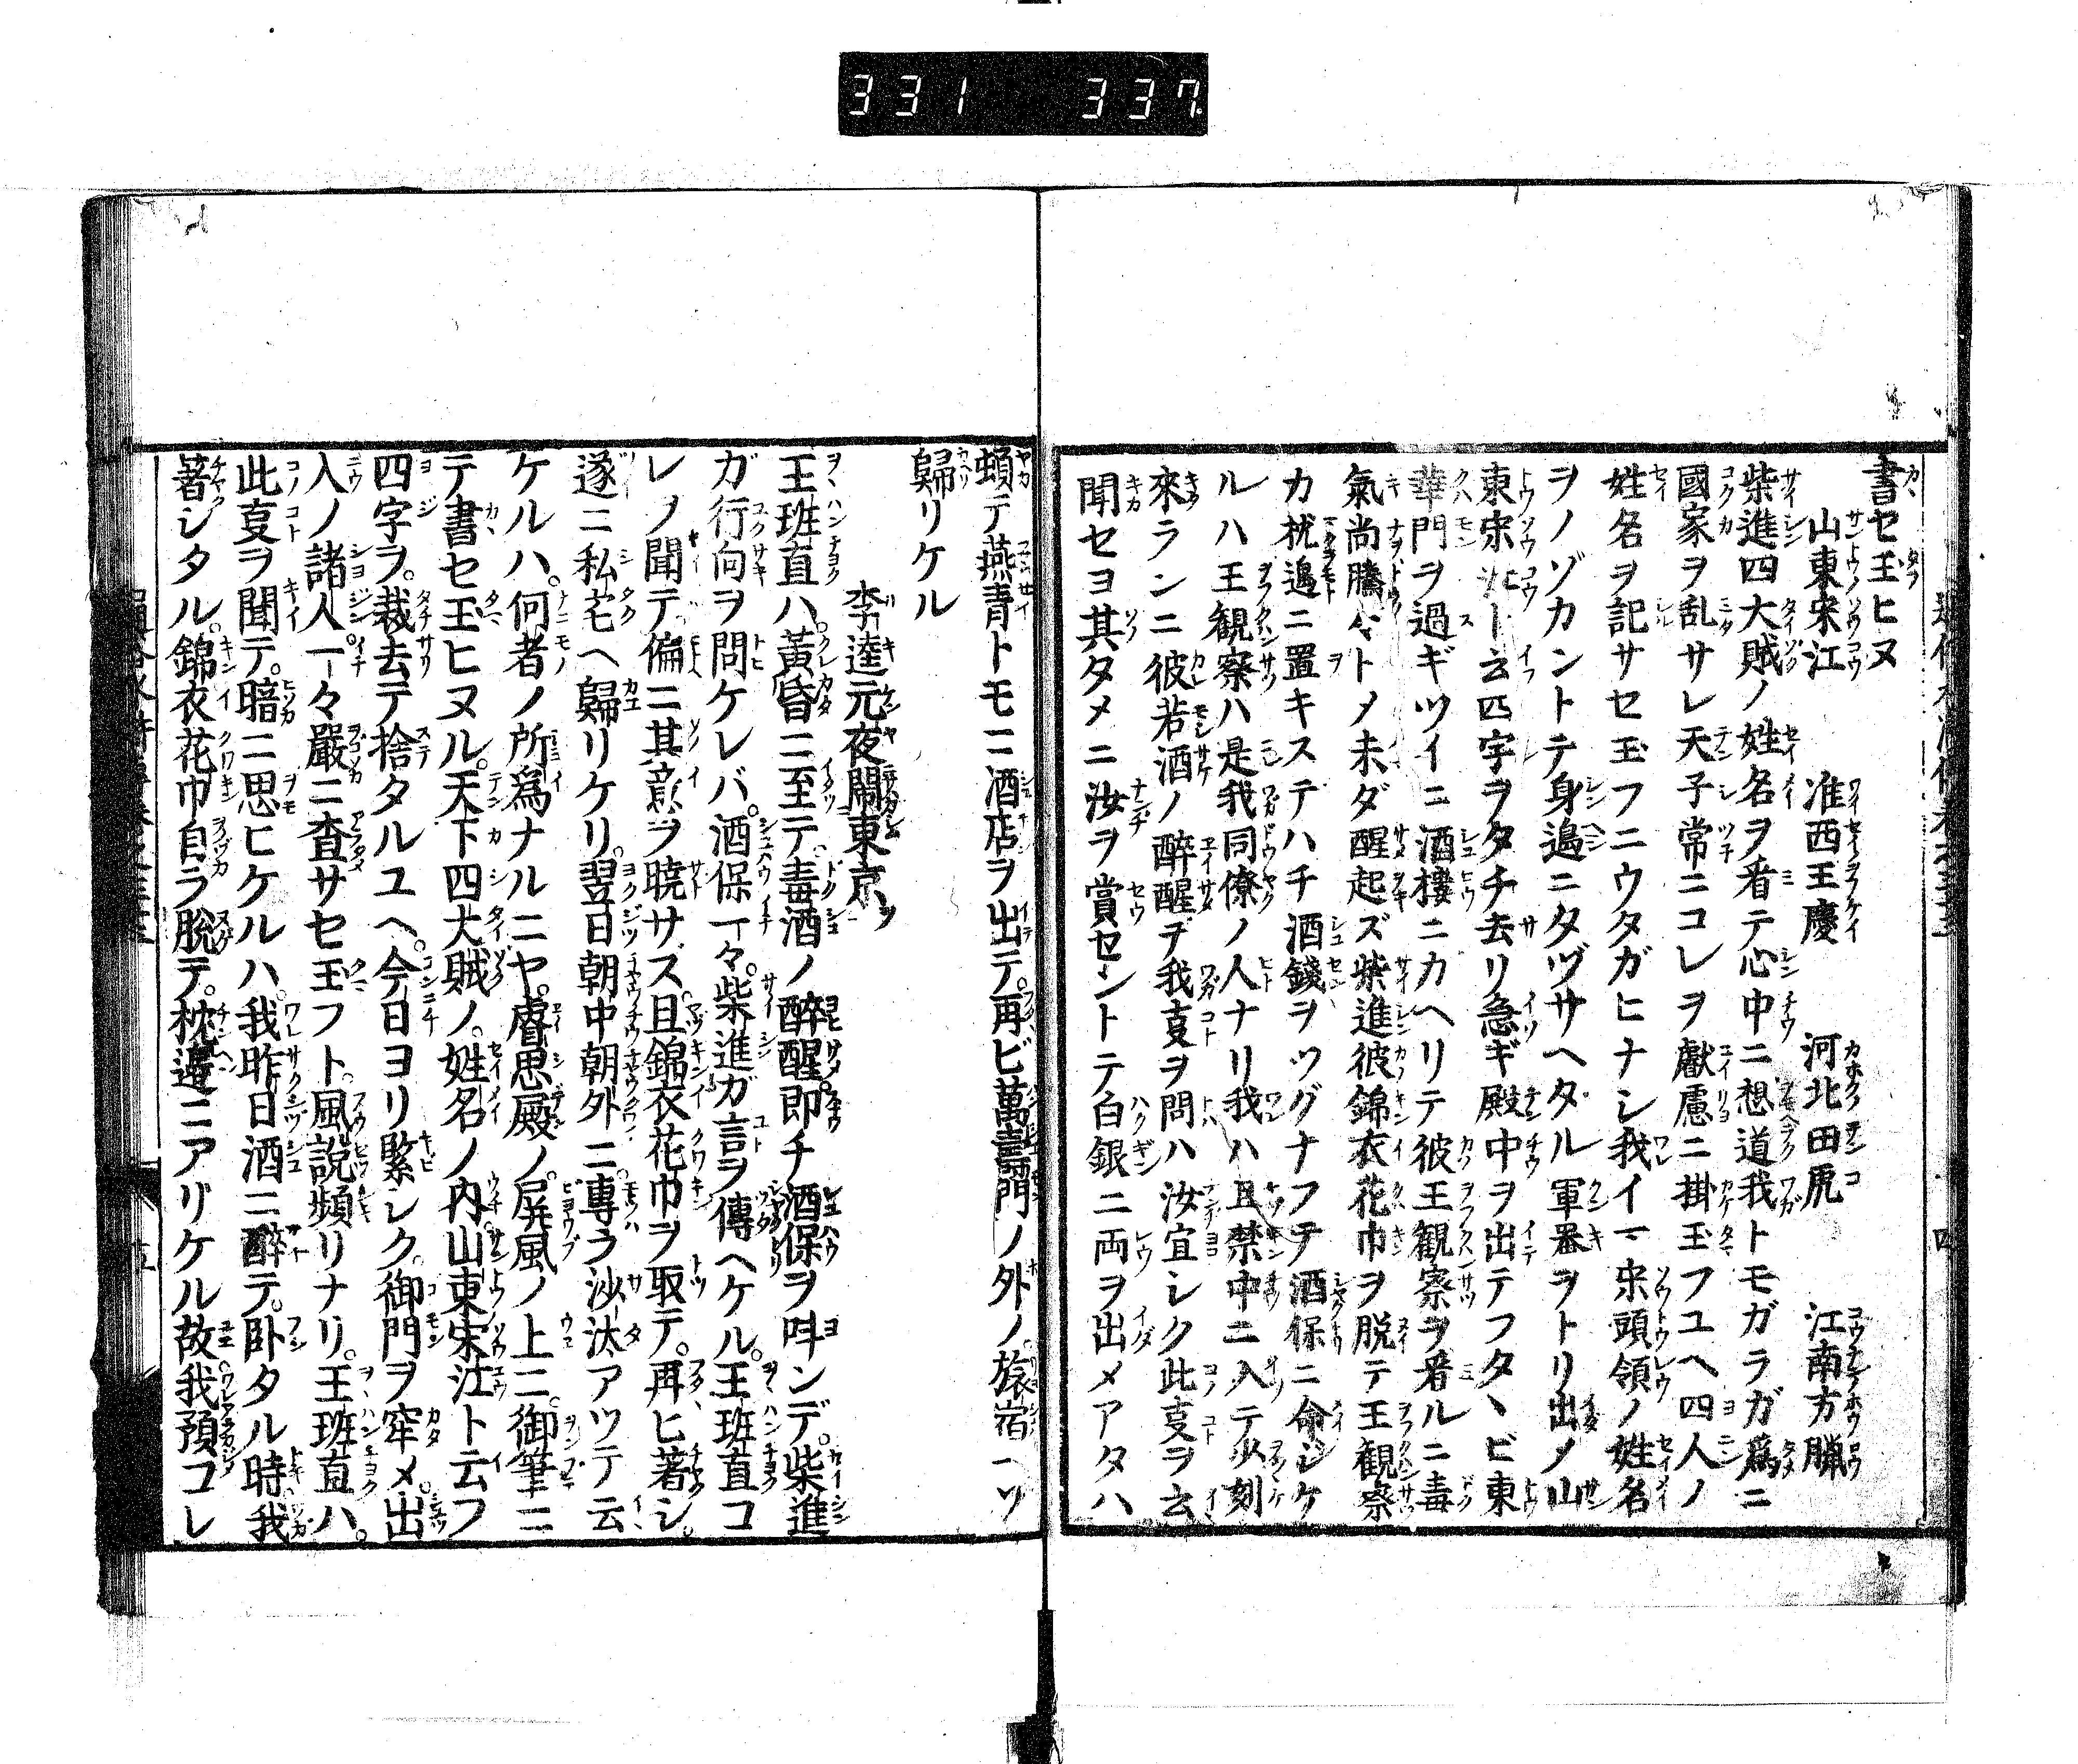 331 337
書セ玉ヒヌ
山東宋江 准西王慶 河北田虎 江南方臘
柴進四大賊ノ姓名ヲ看テ心中ニ想道我トモガラガ爲ニ
國家ヲ乱サレ天子常ニコレヲ獻慮ニ掛玉フユヘ四人ノ
姓名ヲ記サセ玉フニウタガヒナシ我イマ宋頭領ノ姓名
ヲノゾカントテ身邉ニタヅサヘタル軍器ヲトリ出メ山
東宋江ト云四字ヲタチ去リ急ギ殿中ヲ出テフタヽビ東
華門ヲ過ギツイニ酒樓ニカヘリテ彼王観察ヲ看ルニ毒
氣尚騰々トメ未ダ醒起ズ柴進彼錦衣花巾ヲ脱テ王観察
カ枕邉ニ置キステハチ酒錢ヲツグナフテ酒保ニ命ジケ
ルハ王観察ハ是我同僚ノ人ナリ我ハ且禁中ニ入テ少刻
來ランニ彼若酒ノ醉醒ヲ我叓ヲ問ハ汝宜シク此叓ヲ云
聞セヨ其タメニ汝ヲ賞セントテ白銀二両ヲ出メアタハ
頓テ燕青トモニ酒店ヲ出テ。再ビ萬壽門ノ外ノ。旅宿ニソ
歸リケル
李逵元夜鬧東京ヲ
王班直ハ。黃昏ニ至テ毒酒ノ醉醒即チ酒保ヲ呼ンデ。柴進
ガ行向ヲ問ケレバ。酒保一々。柴進ガ言ヲ傳ヘケル。王班直コ
レノ聞テ偏ニ其意ヲ暁サズ。且錦衣花巾ヲ取テ。再ヒ著シ。
遂ニ私宅ヘ歸リケリ。翌日朝中朝外ニ。專ラ沙汰アツテ云
ケルハ。何者ノ所爲ナルニヤ。睿思殿ノ。屏風ノ上ニ。御筆ニ
テ書セ玉ヒヌル。天下四大賊ノ。姓名ノ内山東宋江ト云フ
四字ヲ。裁去テ捨タルユヘ。今日ヨリ緊シク。御門ヲ窂メ。出
入ノ諸人。一々嚴ニ査サセ玉フト。風說頻リナリ。王班直ハ。
此叓ヲ聞テ。暗ニ思ヒケルハ。我昨日酒ニ醉テ。卧タル時我
著シタル。錦衣花巾自ラ脱テ。枕邉ニアリケル故我預コレ